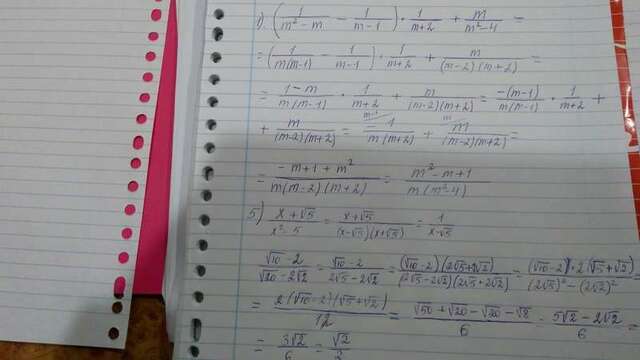 1) (1/(m²-m) - 1/(m-1)) · 1/(m+2) + m/(m²-4) =
= (1/(m(m-1)) - 1/(m-1)) · 1/(m+2) + m/((m-2)(m+2)) =
= (1-m)/(m(m-1)) · 1/(m+2) + m/((m-2)(m+2)) = -(m-1)/(m(m-1)) · 1/(m+2) +
+ m/((m-2)(m+2)) = -1/(m(m+2)) + m/((m-2)(m+2)) =
= (-m+1+m²)/(m(m-2)(m+2)) = (m²-m+1)/(m(m²-4))
5) (x+√5)/(x²-5) = (x+√5)/((x-√5)(x+√5)) = 1/(x-√5)
(√10-2)/(√20-2√2) = (√10-2)/(2√5-2√2) = (√10-2)(2√5+√2)/((2√5-2√2)(2√5+2√2)) = (√10-2)·2(√5+√2)/((2√5)²-(2√2)²)
= 2(√10-2)(√5+√2)/12 = (√50+√20-√20-√8)/6 = (5√2-2√2)/6 =
= 3√2/6 = √2/2